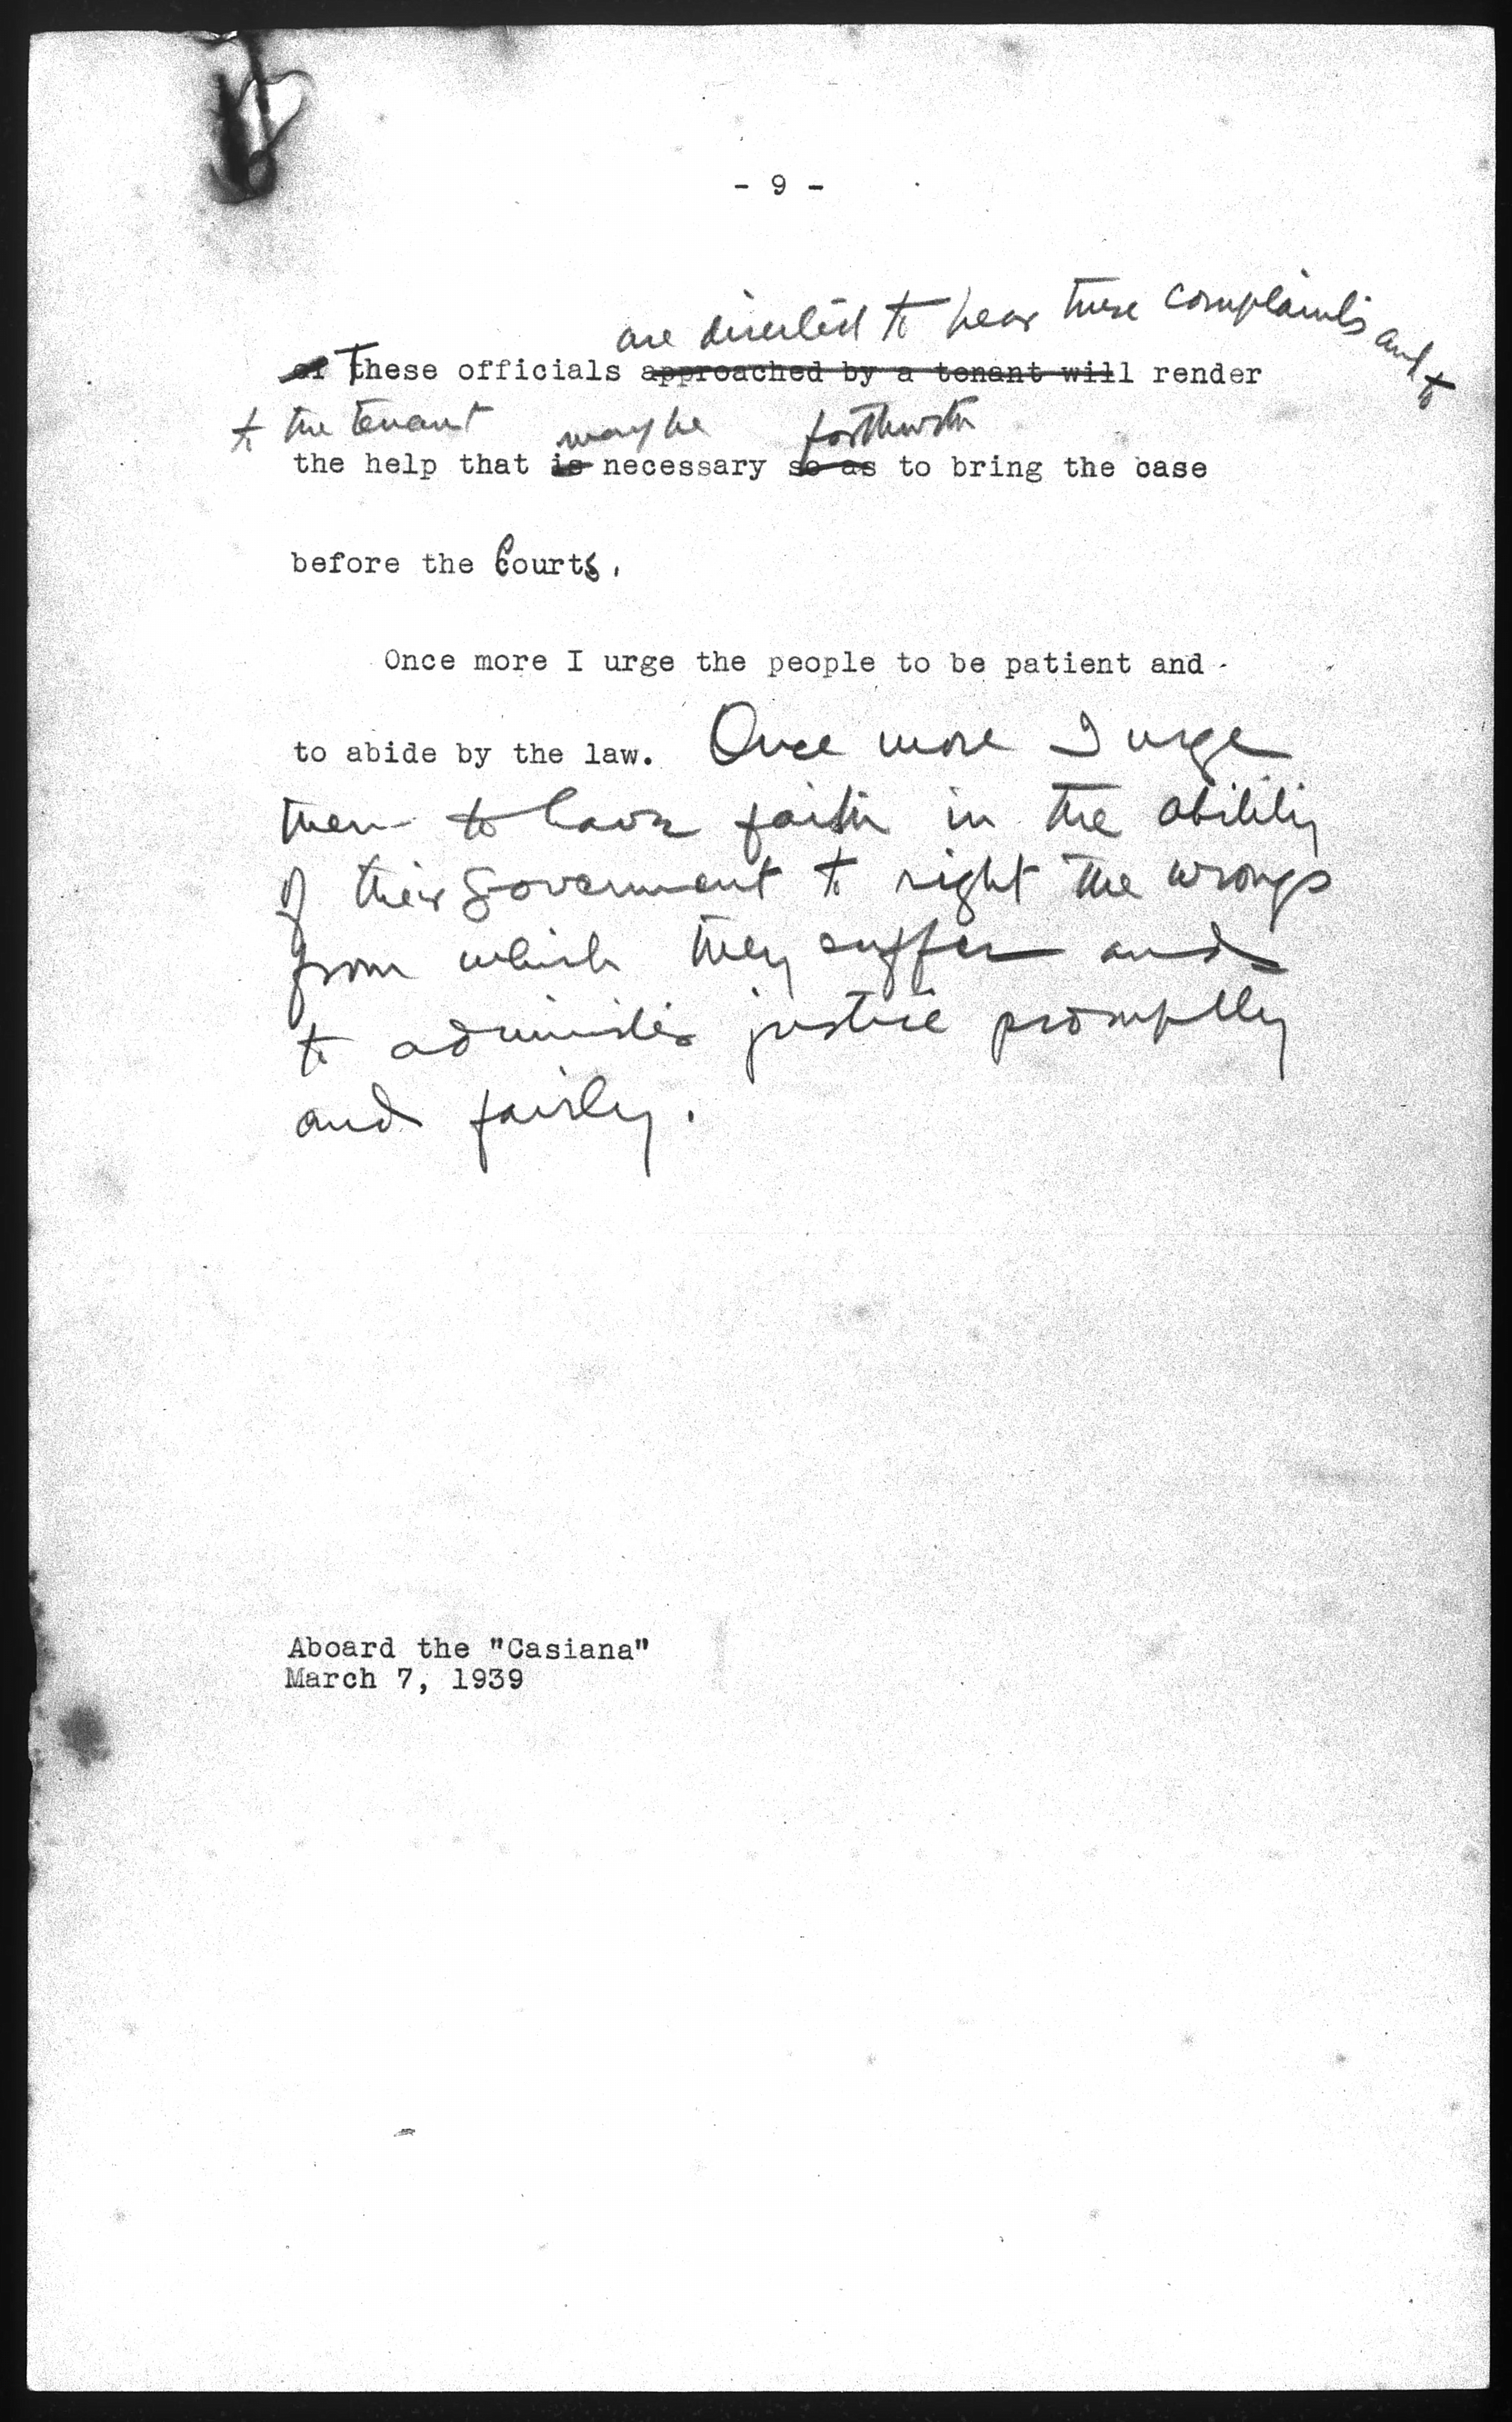 - 9 -
are directed to hear these complaints and to
of These officials approached by a tenant will render
to the tenant may be forthwith
the help that is necessary so as to bring the case
before the Courts.
Once more I urge the people to be patient and
to abide by the law. Once more I urge
them to have faith in the ability
of their Government to right the wrongs
from which they suffer and
to administer justice promptly
and fairly.
Aboard the "Casiana"
March 7, 1939